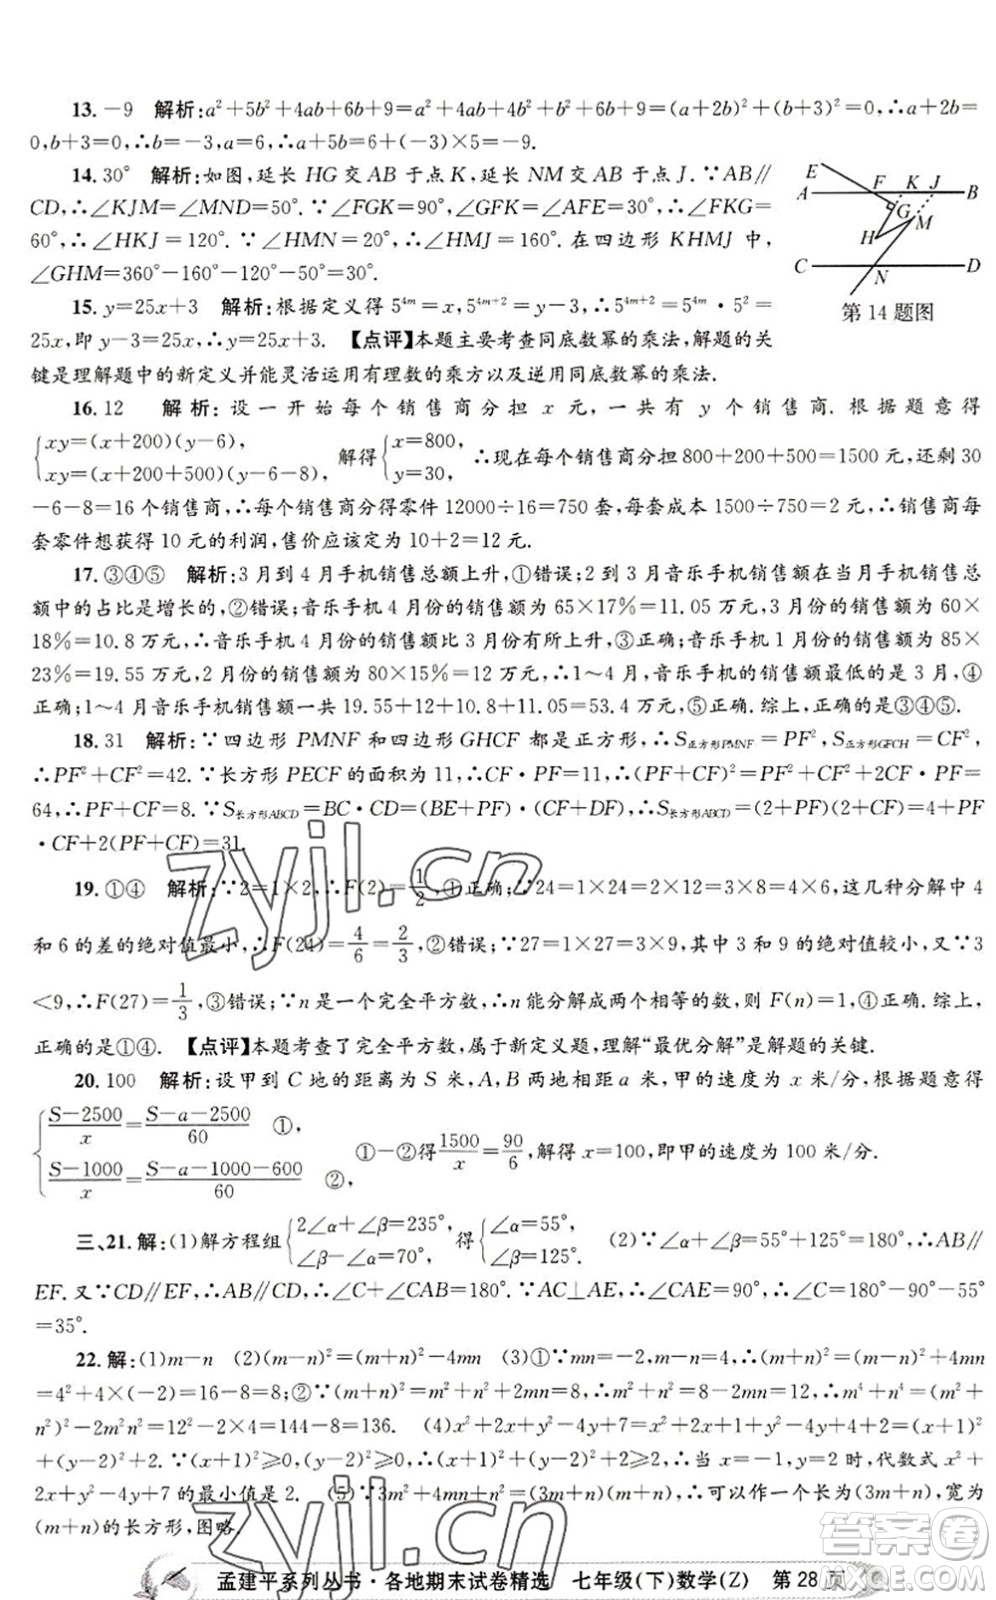 13. －9　解析:a²＋5b²＋4ab＋6b＋9＝a²＋4ab＋4b²＋b²＋6b＋9＝(a＋2b)²＋(b＋3)²＝0,∴a＋2b＝
0,b＋3＝0,∴b＝－3,a＝6,∴a＋5b＝6＋(－3)×5＝－9.
14. 30°　解析:如图,延长 HG 交 AB 于点 K,延长 NM 交 AB 于点 J.∵AB∥
CD,∴∠KJM＝∠MND＝50°.∵∠FGK＝90°,∠GFK＝∠AFE＝30°,∴∠FKG＝
60°,∴∠HKJ＝120°.∵∠HMN＝20°,∴∠HMJ＝160°.在四边形 KHMJ 中,
∠GHM＝360°－160°－120°－50°＝30°.
E
A F K J B
G M
H
C N D
第 14 题图
15. y＝25x＋3　解析:根据定义得 5^{4m}＝x,5^{4m＋2}＝y－3,∴5^{4m＋2}＝5^{4m}·5²＝
25x,即 y－3＝25x,∴y＝25x＋3.　【点评】本题主要考查同底数幂的乘法,解题的关
键是理解题中的新定义并能灵活运用有理数的乘方以及逆用同底数幂的乘法.
16. 12　解析:设一开始每个销售商分担 x 元,一共有 y 个销售商.根据题意得
{xy＝(x＋200)(y－6),
xy＝(x＋200＋500)(y－6－8),　解得{x＝800,
y＝30,　∴现在每个销售商分担 800＋200＋500＝1500 元,还剩 30
－6－8＝16 个销售商,∴每个销售商分得零件 12000÷16＝750 套,每套成本 1500÷750＝2 元,∴销售商每
套零件想获得 10 元的利润,售价应该定为 10＋2＝12 元.
17. ③④⑤　解析:3 月到 4 月手机销售总额上升,①错误;2 到 3 月音乐手机销售额在当月手机总销售
额中的占比是增长的,②错误;音乐手机 4 月份的销售额为 65×17%＝11.05 万元,3 月份的销售额为 60×
18%＝10.8 万元,∴音乐手机 4 月份的销售额比 3 月份有所上升,③正确;音乐手机 1 月份的销售额为 85×
23%＝19.55 万元,2 月份的销售额为 80×15%＝12 万元,∴1～4 月音乐手机销售额最低的是 3 月,④
正确;1～4 月音乐手机销售额一共 19.55＋12＋10.8＋11.05＝53.4 万元,⑤正确.综上,正确的是③④⑤.
18. 31　解析:∵四边形 PMNF 和四边形 GHCF 都是正方形,∴S正方形PMNF＝PF²,S正方形GFCH＝CF²,
∴PF²＋CF²＝42.∵长方形 PECF 的面积为 11,∴CF·PF＝11,∴(PF＋CF)²＝PF²＋CF²＋2CF·PF＝
64,∴PF＋CF＝8.∵S长方形ABCD＝BC·CD＝(BE＋PF)·(CF＋DF),∴S长方形ABCD＝(2＋PF)(2＋CF)＝4＋PF
·CF＋2(PF＋CF)＝31.
19. ①④　解析:∵2＝1×2,∴F(2)＝1/2,①正确;∵24＝1×24＝2×12＝3×8＝4×6,这几种分解中 4
和 6 的差的绝对值最小,∴F(24)＝4/6＝2/3,②错误;∵27＝1×27＝3×9,其中 3 和 9 的绝对值较小,又∵3
＜9,∴F(27)＝1/3,③错误;∵n 是一个完全平方数,∴n 能分解成两个相等的数,则 F(n)＝1,④正确.综上,
正确的是①④.　【点评】本题考查了完全平方数,属于新定义题,理解“最优分解”是解题的关键.
20. 100　解析:设甲到 C 地的距离为 S 米,A,B 两地相距 a 米,甲的速度为 x 米/分,根据题意得
{(S－2500)/x＝(S－a－2500)/60　①,
(S－1000)/x＝(S－a－1000－600)/60　②,　①－②得 1500/x＝90/6,解得 x＝100,即甲的速度为 100 米/分.
三、21. 解:(1)解方程组{2∠α＋∠β＝235°,
∠β－∠α＝70°,　得{∠α＝55°,
∠β＝125°.　(2)∵∠α＋∠β＝55°＋125°＝180°,∴AB∥
EF.又∵CD∥EF,∴AB∥CD,∴∠C＋∠CAB＝180°.∵AC⊥AE,∴∠CAE＝90°,∴∠C＝180°－90°－55°
＝35°.
22. 解:(1)m－n　(2)(m－n)²＝(m＋n)²－4mn　(3)①∵mn＝－2,m－n＝4,∴(m＋n)²＝(m－n)²＋4mn
＝4²＋4×(－2)＝16－8＝8;②∵(m＋n)²＝m²＋2mn＋n²,∴m²＋n²＝8－2×(－2)＝12,∴m⁴＋n⁴＝(m²＋
n²)²－2m²n²＝12²－2×4＝144－8＝136.　(4)x²＋2x＋y²－4y＋7＝x²＋2x＋1＋y²－4y＋4＋2＝(x＋1)²
＋(y－2)²＋2.∵(x＋1)²≥0,(y－2)²≥0,∴(x＋1)²＋(y－2)²≥0,∴当 x＝－1,y＝2 时,代数式 x²＋
2x＋y²－4y＋7 的最小值是 2.　(5)∵3m²＋4mn＋n²＝(3m＋n)(m＋n),∴可以作一个长为(3m＋n),宽为
(m＋n)的长方形,图略.
zyjl.cn
zyjl.cn
答案圈
MXQE.COM
孟建平系列丛书·各地期末试卷精选　七年级(下)数学(Z)　第 28 页